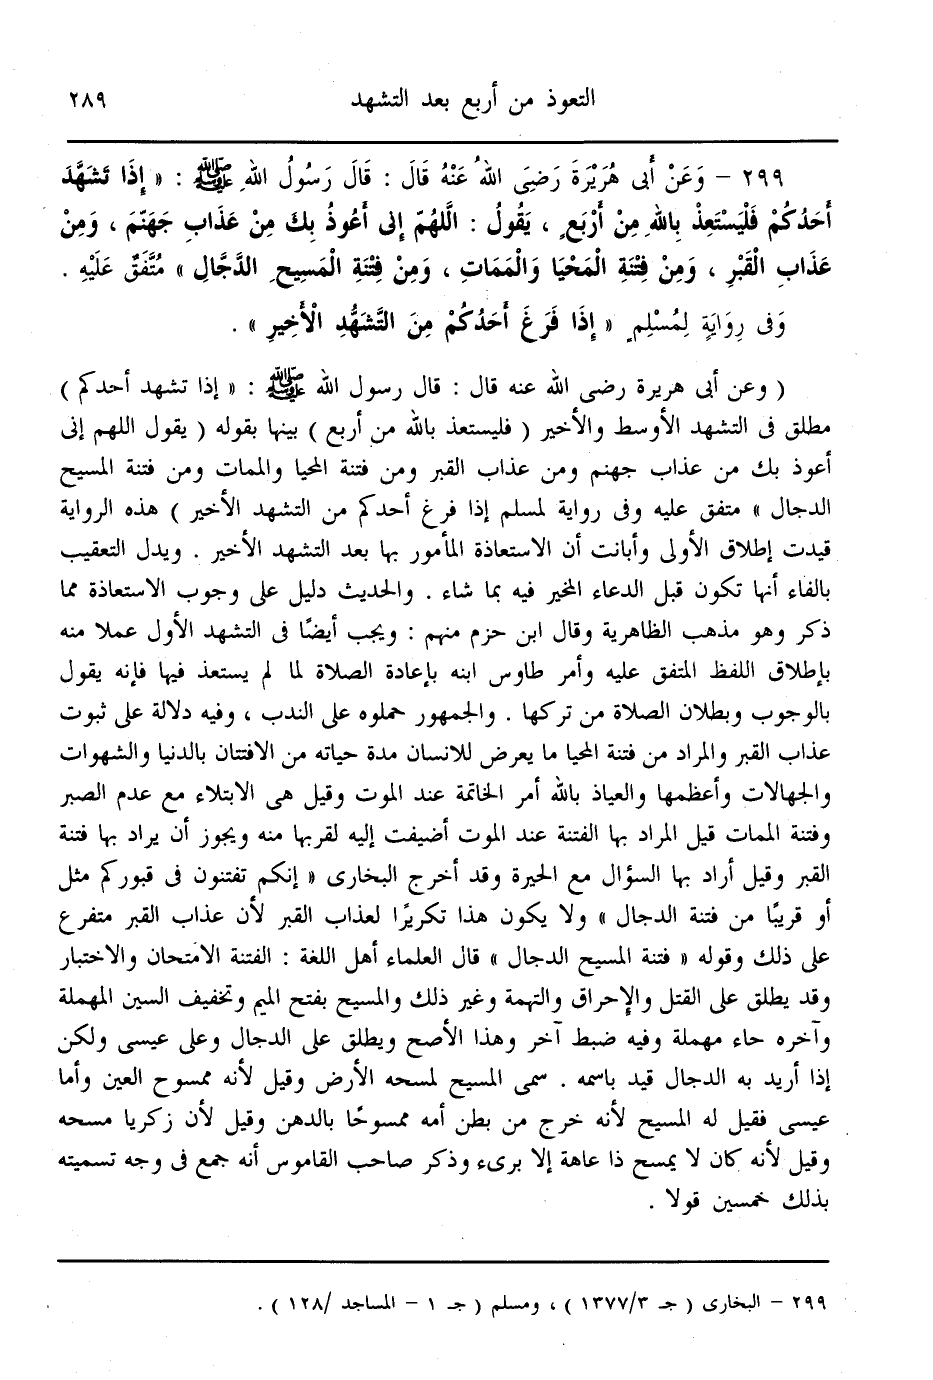 التعوذ من أربع بعد التشهد ٢٨٩
٢٩٩ - وَعَنْ أَبِى هُرَيْرَةَ رَضِىَ اللهُ عَنْهُ قَالَ : قَالَ رَسُولُ اللهِ ﷺ : « إِذَا تَشَهَّدَ
أَحَدُكُمْ فَلْيَسْتَعِذْ بِاللهِ مِنْ أَرْبَعٍ ، يَقُولُ : الَّلهُمّ إِنِّى أَعُوذُ بِكَ مِنْ عَذَابِ جَهَنّمَ ، وَمِنْ
عَذَابِ الْقَبْرِ ، وَمِنْ فِتْنَةِ الْمَحْيَا وَالْمَمَاتِ ، وَمِنْ فِتْنَةِ الْمَسِيحِ الدَّجَّالِ » مُتَّفَقٌ عَلَيْهِ .
وَفِى رِوَايَةٍ لِمُسْلِمٍ « إِذَا فَرَغَ أَحَدُكُمْ مِنَ التَّشَهُّدِ الْأَخِيرِ » .
( وعن أبى هريرة رضى الله عنه قال : قال رسول الله ﷺ : « إذا تشهد أحدكم )
مطلق فى التشهد الأوسط والأخير ( فليستعذ بالله من أربع ) بينها بقوله ( يقول اللهم إنى
أعوذ بك من عذاب جهنم ومن عذاب القبر ومن فتنة المحيا والممات ومن فتنة المسيح
الدجال » متفق عليه وفى رواية لمسلم إذا فرغ أحدكم من التشهد الأخير ) هذه الرواية
قيدت إطلاق الأولى وأبانت أن الاستعاذة المأمور بها بعد التشهد الأخير . ويدل التعقيب
بالفاء أنها تكون قبل الدعاء المخير فيه بما شاء . والحديث دليل على وجوب الاستعاذة مما
ذكر وهو مذهب الظاهرية وقال ابن حزم منهم : ويجب أيضًا فى التشهد الأول عملا منه
بإطلاق اللفظ المتفق عليه وأمر طاوس ابنه بإعادة الصلاة لما لم يستعذ فيها فإنه يقول
بالوجوب وبطلان الصلاة من تركها . والجمهور حملوه على الندب ، وفيه دلالة على ثبوت
عذاب القبر والمراد من فتنة المحيا ما يعرض للانسان مدة حياته من الافتتان بالدنيا والشهوات
والجهالات وأعظمها والعياذ بالله أمر الخاتمة عند الموت وقيل هى الابتلاء مع عدم الصبر
وفتنة الممات قيل المراد بها الفتنة عند الموت أضيفت إليه لقربها منه ويجوز أن يراد بها فتنة
القبر وقيل أراد بها السؤال مع الحيرة وقد أخرج البخارى « إنكم تفتنون فى قبوركم مثل
أو قريبًا من فتنة الدجال » ولا يكون هذا تكريرًا لعذاب القبر لأن عذاب القبر متفرع
على ذلك وقوله « فتنة المسيح الدجال » قال العلماء أهل اللغة : الفتنة الامتحان والاختبار
وقد يطلق على القتل والإحراق والتهمة وغير ذلك والمسيح بفتح الميم وتخفيف السين المهملة
وآخره حاء مهملة وفيه ضبط آخر وهذا الأصح ويطلق على الدجال وعلى عيسى ولكن
إذا أريد به الدجال قيد باسمه . سمى المسيح لمسحه الأرض وقيل لأنه ممسوح العين وأما
عيسى فقيل له المسيح لأنه خرج من بطن أمه ممسوحًا بالدهن وقيل لأن زكريا مسحه
وقيل لأنه كان لا يمسح ذا عاهة إلا برىء وذكر صاحب القاموس أنه جمع فى وجه تسميته
بذلك خمسين قولا .
٢٩٩ - البخارى ( جـ ١٣٧٧/٣ ) ، ومسلم ( جـ ١ - المساجد /١٢٨ ) .